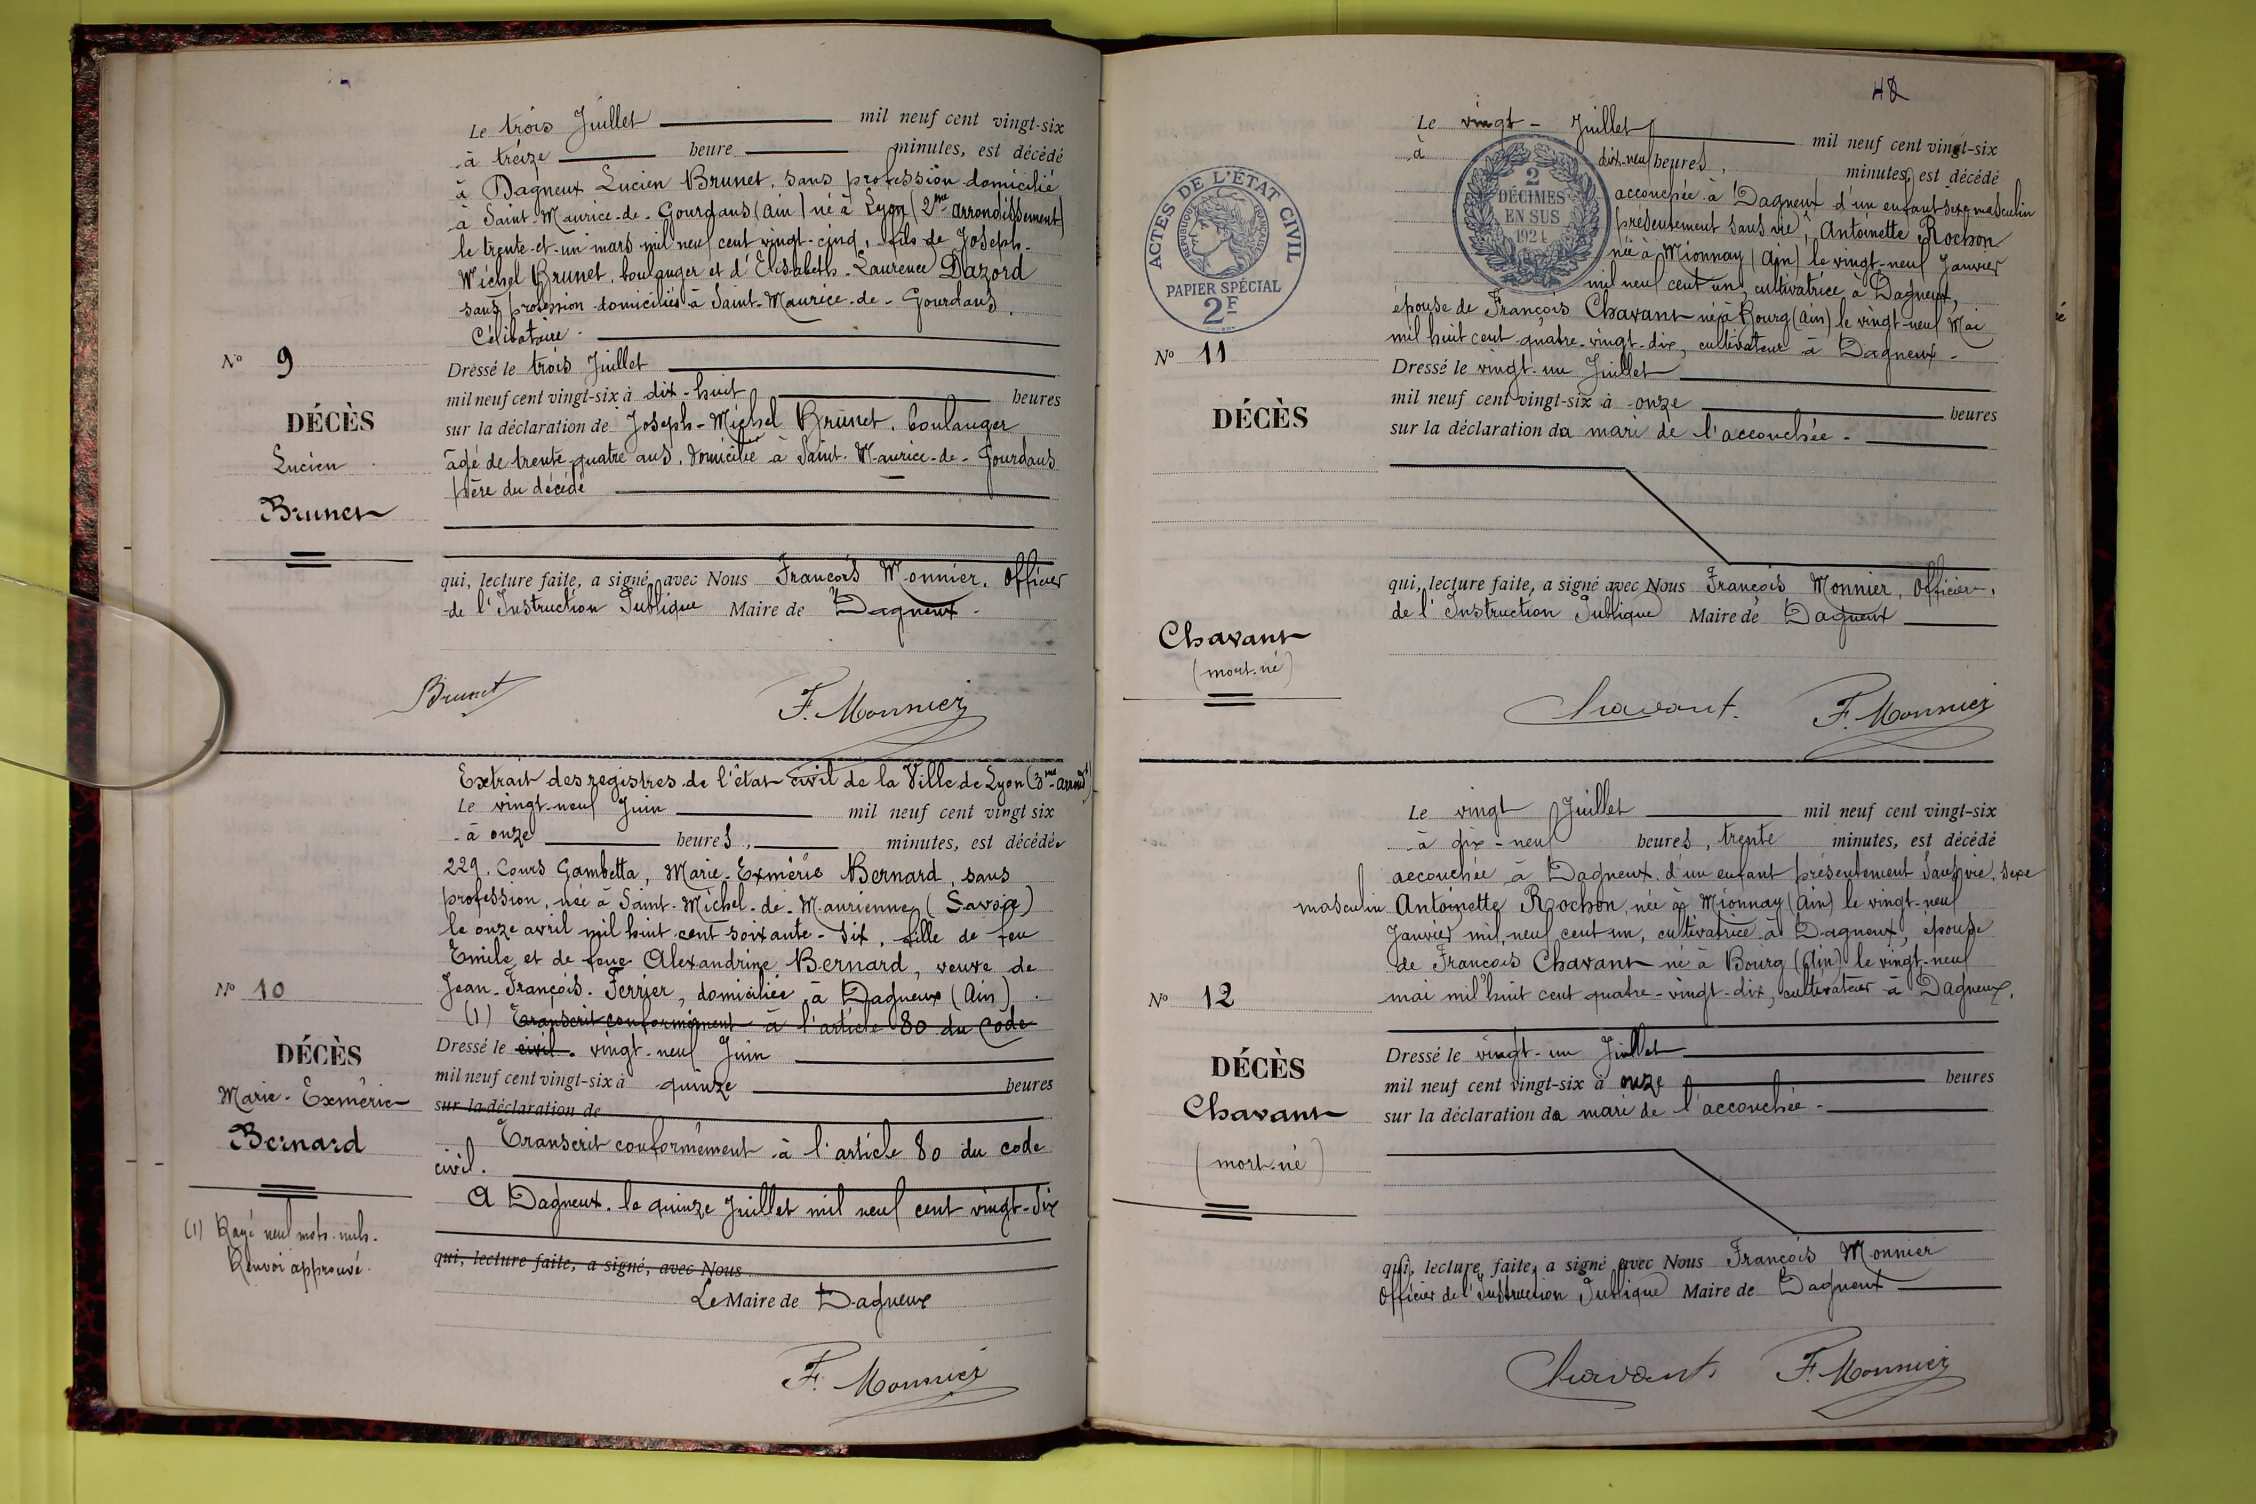 Le trois Juillet mil neuf cent vingt-six
à treize heure minutes, est décédé
à Dagneux Lucien Brunet, sans profession domicilié
à Saint-Maurice-de-Gourdans (Ain) né à Lyon (2me arrondissement)
le trente-et-un mars mil neuf cent vingt-cinq, fils de Joseph-
Michel Brunet, boulanger et d'Elisabeth-Laurence Dazord
sans profession domiciliés à Saint-Maurice-de-Gourdans.
Célibataire.
N° 9
DÉCÈS
Lucien
Brunet
Dressé le trois Juillet
mil neuf cent vingt-six à dix-huit heures
sur la déclaration de Joseph-Michel Brunet, boulanger
âgé de trente-quatre ans, domicilié à Saint-Maurice-de-Gourdans
père du décédé
qui, lecture faite, a signé avec Nous François Monnier, Officier
de l'Instruction Publique Maire de Dagneux.
Brunet F. Monnier
Extrait des registres de l'état civil de la Ville de Lyon (3me arrondt)
Le vingt-neuf Juin mil neuf cent vingt six
à onze heures, minutes, est décédée
229, Cours Gambetta, Marie-Exmérie Bernard, sans
profession, née à Saint-Michel-de-Maurienne (Savoie)
le onze avril mil huit cent soixante-six, fille de feu
Emile et de feue Alexandrine Bernard, veuve de
Jean-François Ferrier, domiciliée à Dagneux (Ain).
(1) Transcrit conformément à l'article 80 du code
N° 10
DÉCÈS
Marie-Exmérie
Bernard
(1) Rayé neuf mots nuls.
Renvoi approuvé.
Dressé le civil. vingt-neuf Juin
mil neuf cent vingt-six à quinze heures
sur la déclaration de
Transcrit conformément à l'article 80 du code
civil.
A Dagneux, le quinze Juillet mil neuf cent vingt-six
qui, lecture faite, a signé, avec Nous
Le Maire de Dagneux
F. Monnier
48
Le vingt - Juillet mil neuf cent vingt-six
à dix-neuf heures, minutes, est décédé
accouchée à Dagneux d'un enfant sexe masculin
présentement sans vie, Antoinette Rochon
née à Mionnay (Ain) le vingt-neuf Janvier
mil neuf cent un, cultivatrice à Dagneux,
épouse de François Chavant né à Bourg (Ain) le vingt-neuf Mai
mil huit cent quatre-vingt-dix, cultivateur à Dagneux.
ACTES DE L'ÉTAT CIVIL
RÉPUBLIQUE FRANÇAISE
PAPIER SPÉCIAL
2F
2
DÉCIMES
EN SUS
1924
N° 11
DÉCÈS
Chavant
(mort-né)
Dressé le vingt-un Juillet
mil neuf cent vingt-six à onze heures
sur la déclaration du mari de l'accouchée.
qui, lecture faite, a signé avec Nous François Monnier, Officier
de l'Instruction Publique Maire de Dagneux
Chavant. F. Monnier
Le vingt Juillet mil neuf cent vingt-six
à dix-neuf heures, trente minutes, est décédé
accouchée à Dagneux d'un enfant présentement sans vie, sexe
masculin Antoinette Rochon, née à Mionnay (Ain) le vingt-neuf
Janvier mil neuf cent un, cultivatrice à Dagneux, épouse
de François Chavant né à Bourg (Ain) le vingt-neuf
mai mil huit cent quatre-vingt-dix, cultivateur à Dagneux.
N° 12
DÉCÈS
Chavant
(mort-né)
Dressé le vingt-un Juillet
mil neuf cent vingt-six à onze heures
sur la déclaration du mari de l'accouchée.
qui, lecture faite, a signé avec Nous François Monnier
Officier de l'Instruction Publique Maire de Dagneux
Chavant F. Monnier